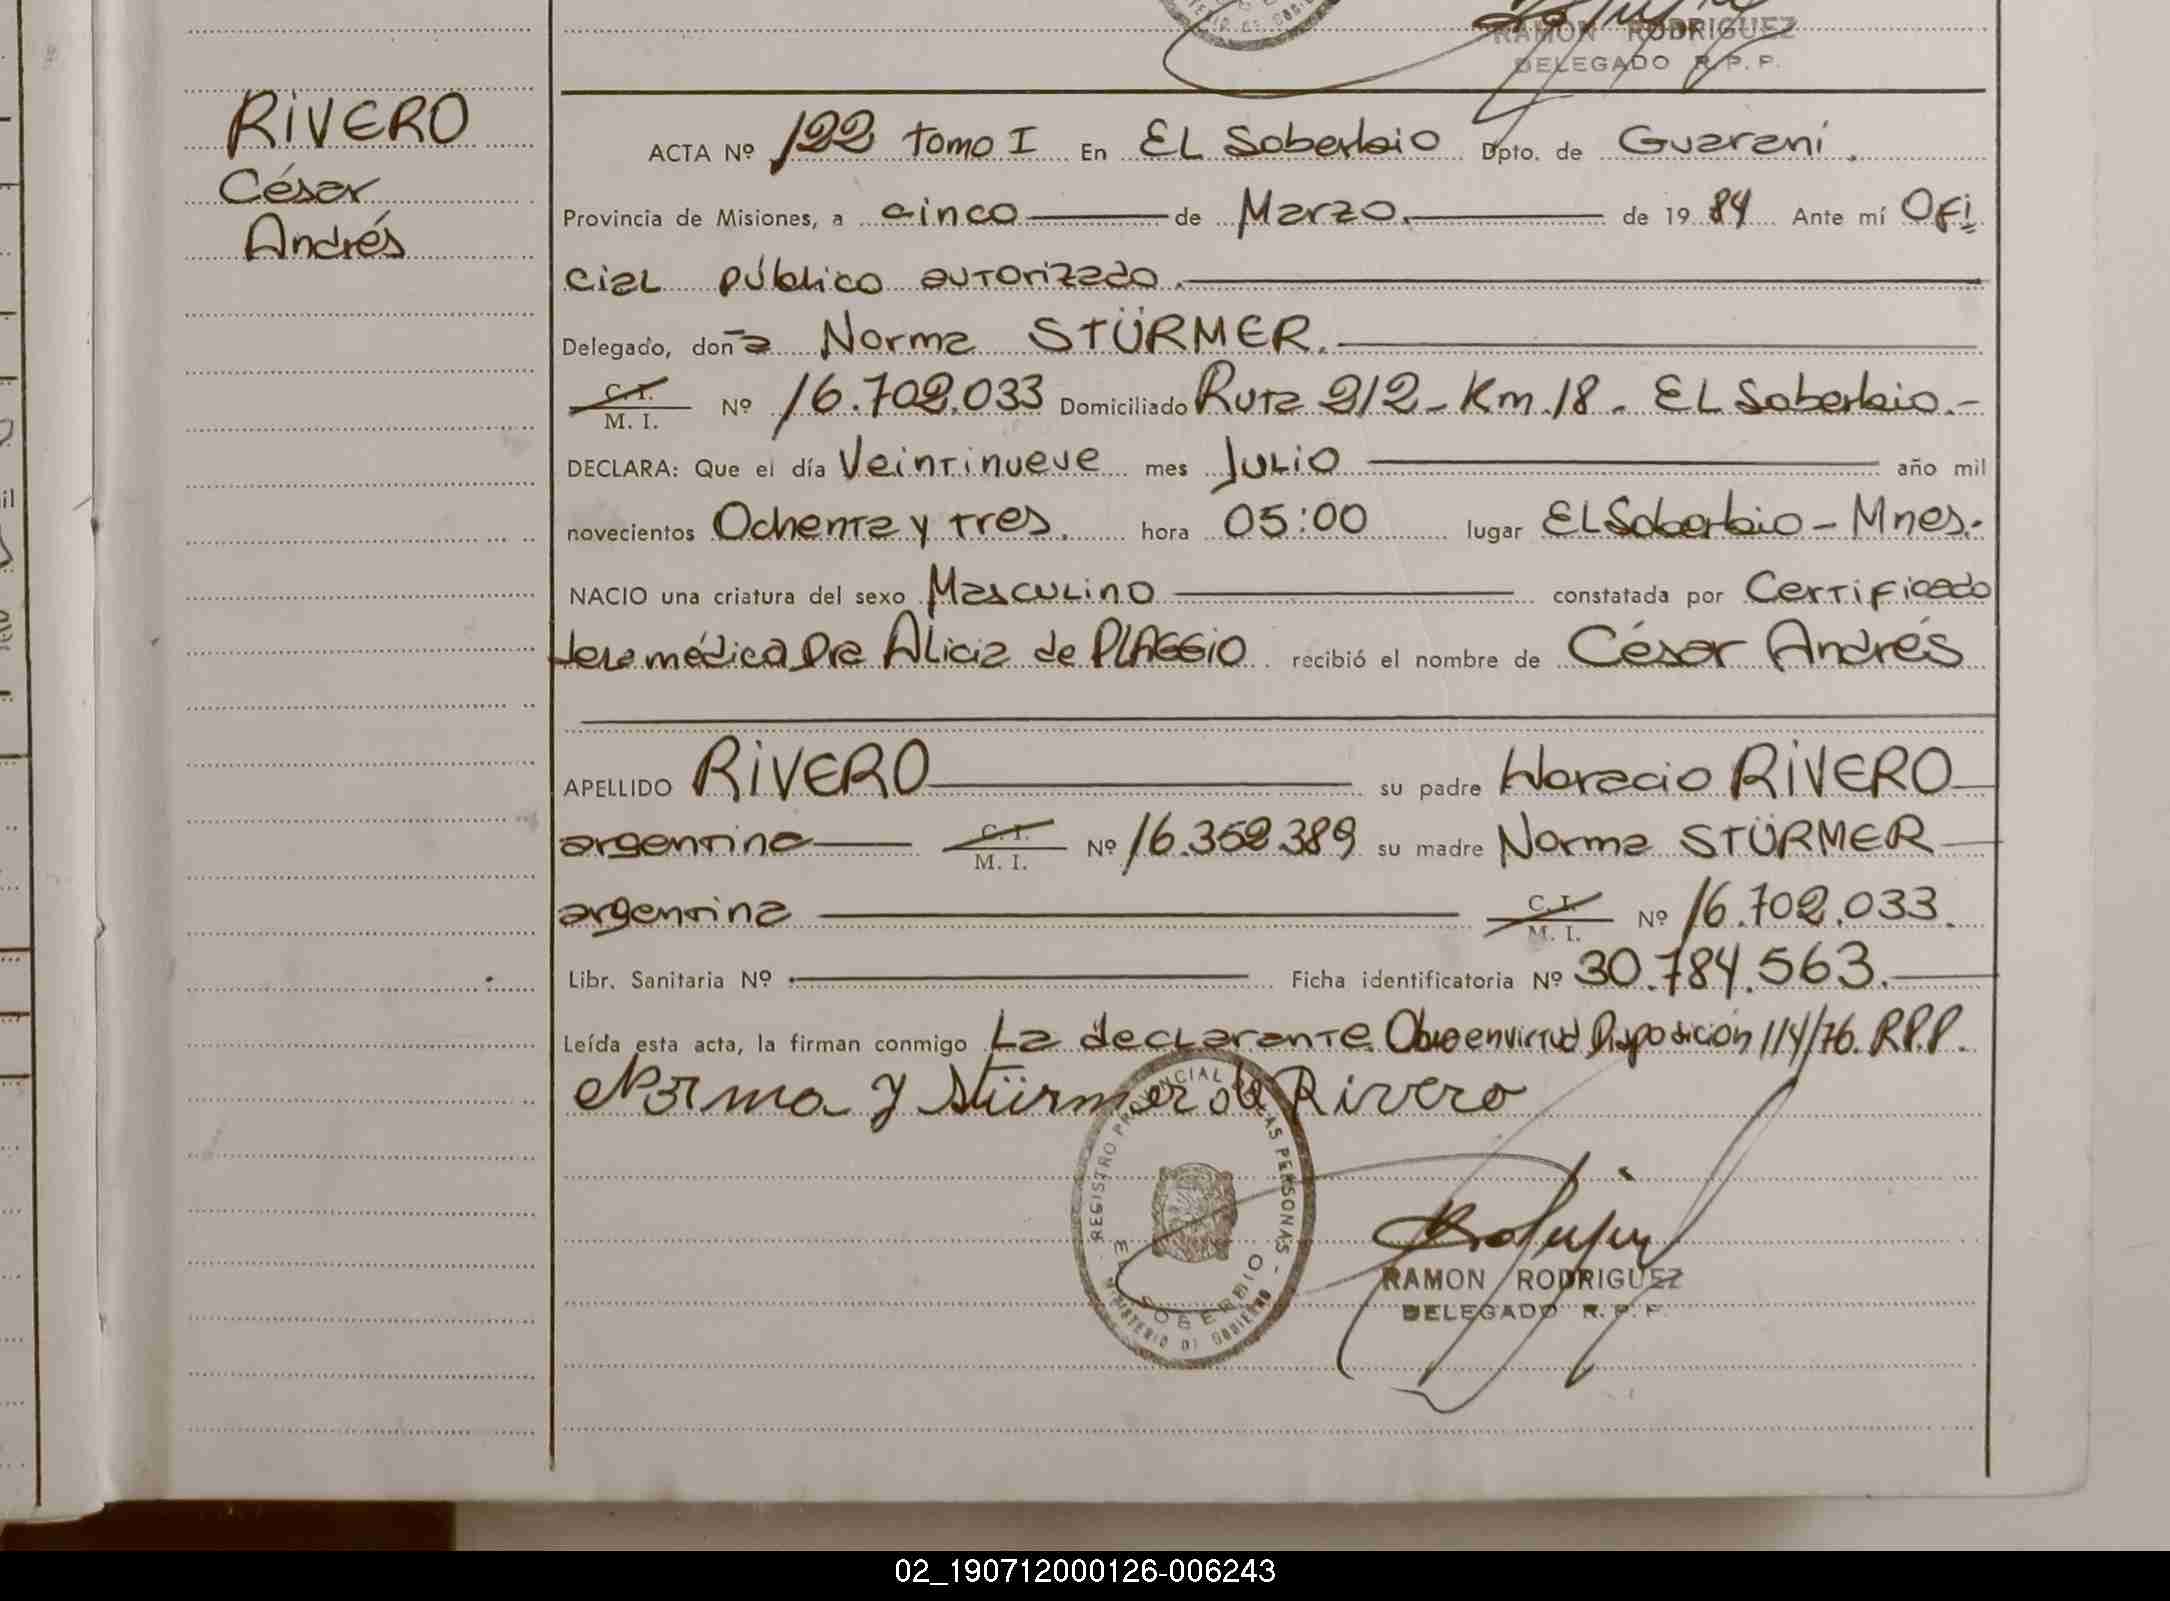 RAMON RODRIGUEZ
DELEGADO R.P.P.
RIVERO
César
Andrés
ACTA Nº 122 Tomo I En EL Soberbio Dpto. de Guaraní.
Provincia de Misiones, a cinco de Marzo. de 19 84 Ante mí Ofi
cial público autorizado.
Delegado, don a Norma STÜRMER.
C. I.
M. I. Nº 16.702.033 Domiciliado Ruta 212 - Km. 18 - EL Soberbio.-
DECLARA: Que el día Veintinueve mes Julio año mil
novecientos Ochenta y tres. hora 05:00 lugar EL Soberbio - Mnes.-
NACIO una criatura del sexo Masculino constatada por Certificado
médica Dra Alicia de PLAGGIO recibió el nombre de César Andrés
APELLIDO RIVERO su padre Horacio RIVERO
argentino C. I.
M. I. Nº 16.352.389 su madre Norma STÜRMER
argentina C. I.
M. I. Nº 16.702.033.
Libr. Sanitaria Nº Ficha identificatoria Nº 30.784.563.
Leída esta acta, la firman conmigo La declarante. Obro en virtud Disposición 114/76. R.P.P.
Norma Y Stürmer de Rivero
REGISTRO PROVINCIAL DE LAS PERSONAS
EL SOBERBIO
MINISTERIO DE GOBIERNO
RAMON RODRIGUEZ
DELEGADO R.P.P.
02_190712000126-006243